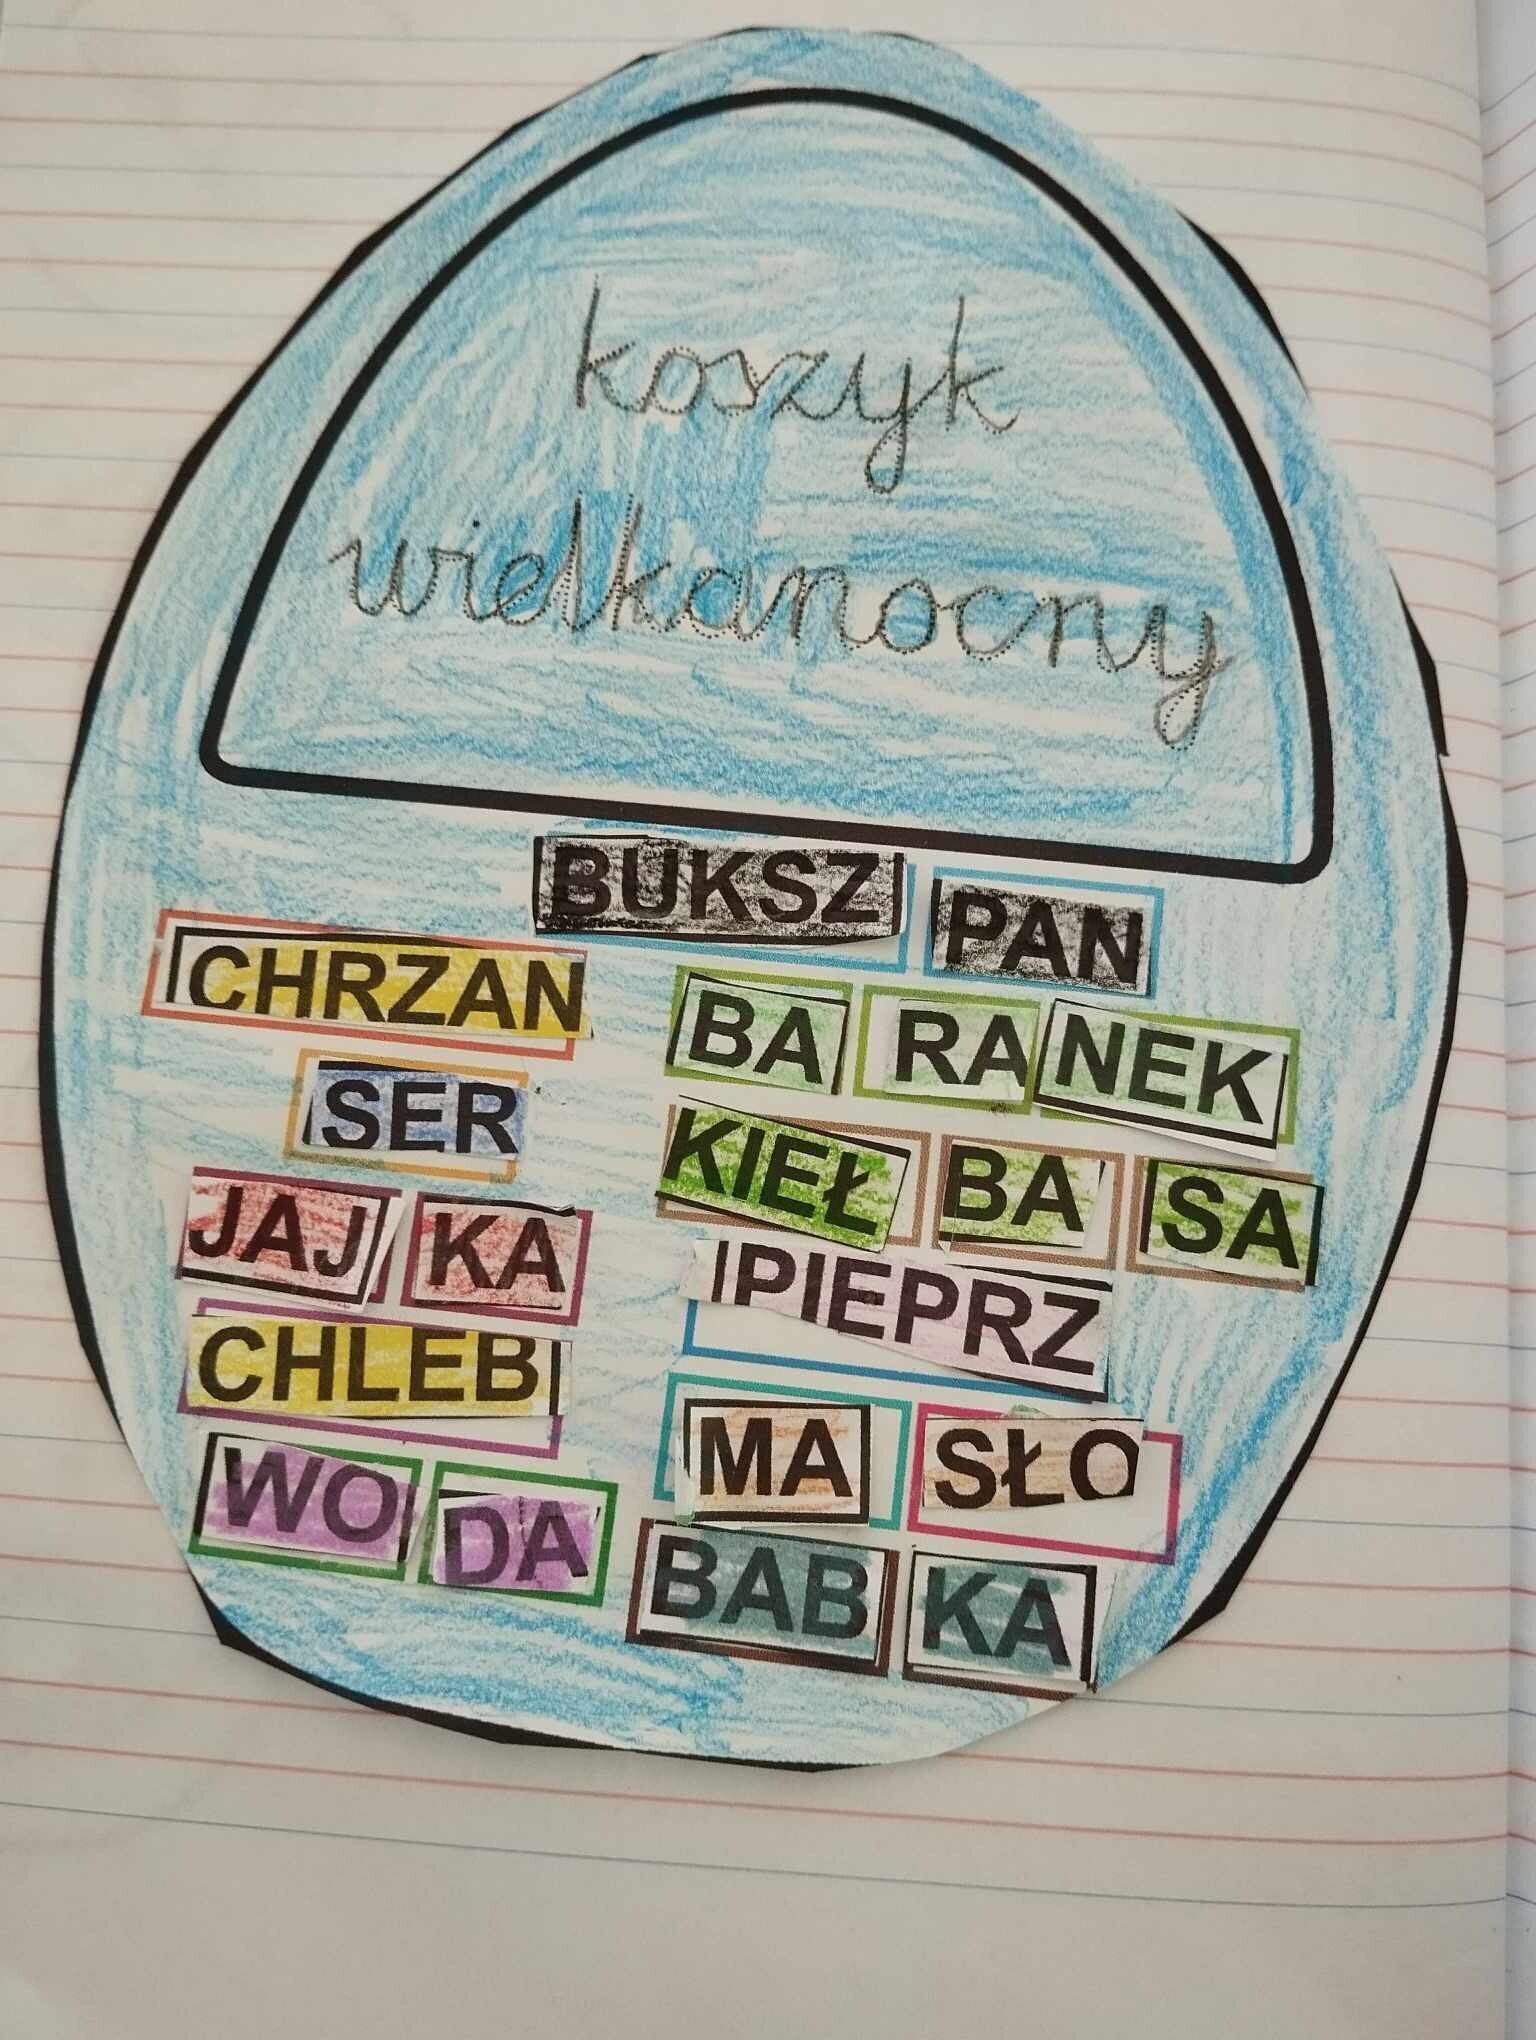 koszyk
wielkanocny
BUKSZ PAN
CHRZAN
BA RA NEK
SER
KIEŁ BA SA
JAJ KA
PIEPRZ
CHLEB
MA SŁO
WO DA
BAB KA